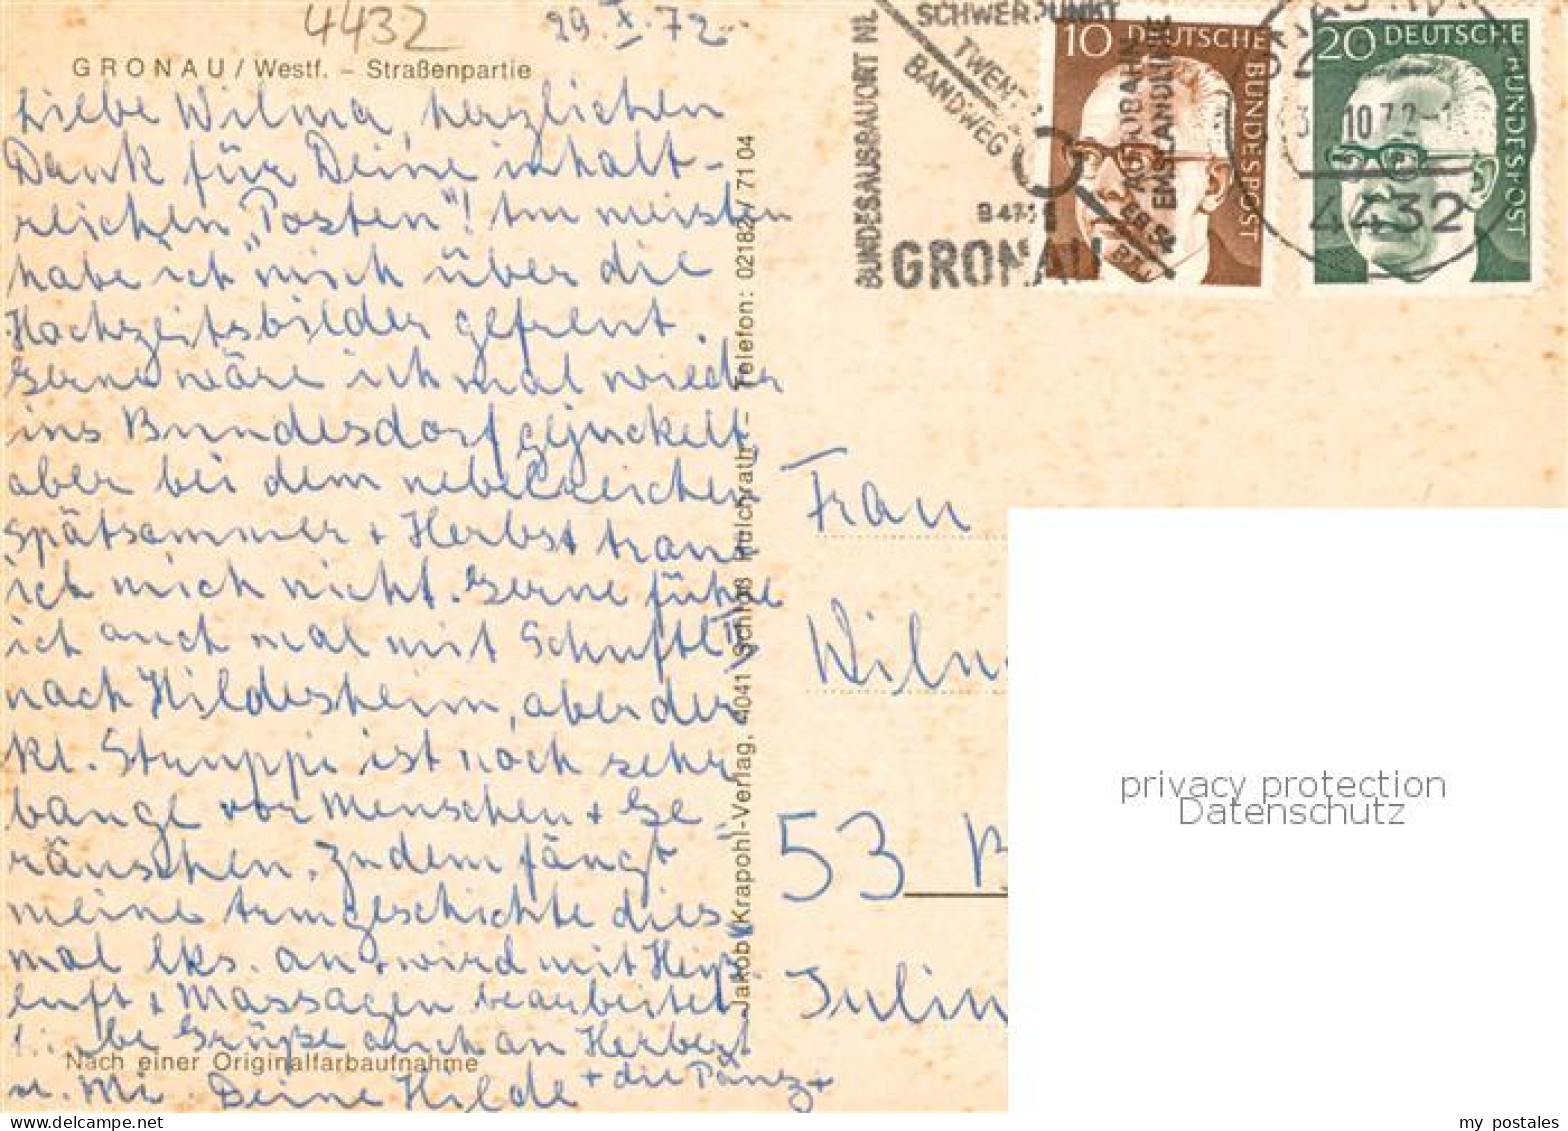 4432
29. X. 72
GRONAU / Westf. – Straßenpartie
Liebe Wilma, herzlichen
Dank für Deine inhalt-
reichen "Posten"! Am meisten
habe ich mich über die
Hochzeitsbilder gefreut.
Gerne wäre ich mal wieder
ins Bundesdorf gejuckelt,
aber bei dem nebelreichen
Spätsommer + Herbst traue
ich mich nicht. Gerne führe
ich auch mal mit Schufti II
nach Hildesheim, aber der
kl. Struppi ist noch sehr
bange vor Menschen + Ge
räuschen. Zudem fängt
meine Armgeschichte dies
mal lks. an + wird mit Heiß
luft + Massagen bearbeitet
Grüße auch an Herbert
Deine Hilde + die
Nach einer Originalfarbaufnahme
Jakob Krapohl-Verlag, 4041 Schloß Hülchrath – Telefon: 02182 / 71 04
BUNDESAUSBAUORT NL
SCHWERPUNKT
TWENT
BANDWEG
AUTOBAHN
EMSLANDLINIE
GRONAU
10 DEUTSCHE BUNDESPOST
20 DEUTSCHE BUNDESPOST
10.72
4432
Frau
Wilm
53 B
Julin
privacy protection
Datenschutz
my postales